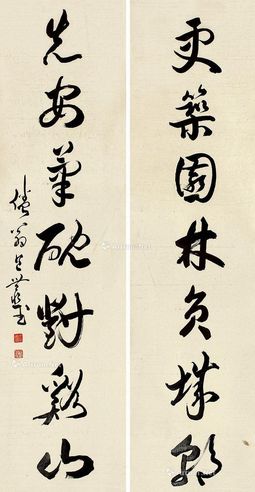 更築園林負城郭
先安筆硯對谿山